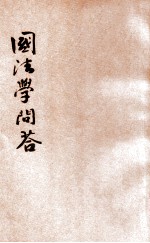 國法學問答